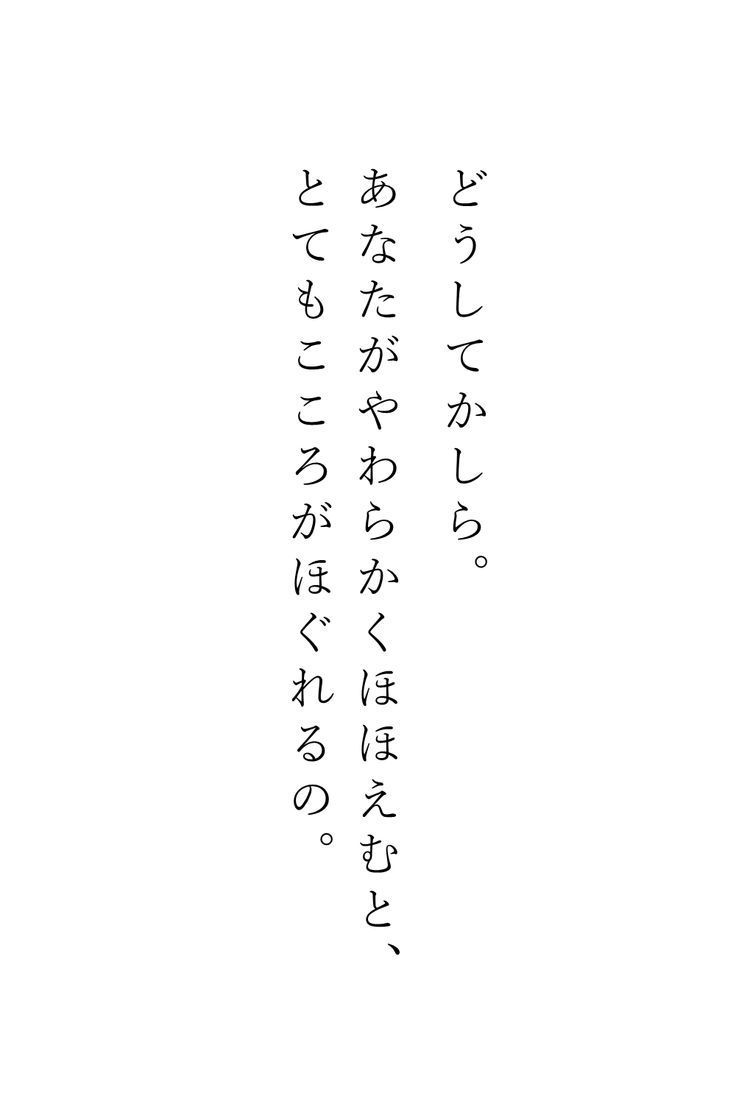 どうしてかしら。
あなたがやわらかくほほえむと、
とてもこころがほぐれるの。